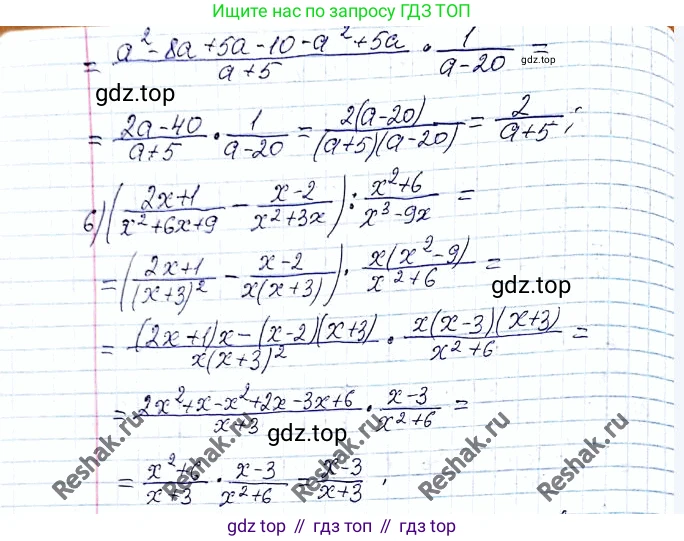 Ищите нас по запросу ГДЗ ТОП
= (a² - 8a + 5a - 10 - a² + 5a)/(a + 5) · 1/(a - 20) =
gdz.top
gdz.top
= (2a - 40)/(a + 5) · 1/(a - 20) = 2(a - 20)/((a + 5)(a - 20)) = 2/(a + 5);
6) ((2x + 1)/(x² + 6x + 9) - (x - 2)/(x² + 3x)) : (x² + 6)/(x³ - 9x) =
= ((2x + 1)/(x + 3)² - (x - 2)/(x(x + 3))) · x(x² - 9)/(x² + 6) =
gdz.top
= ((2x + 1)x - (x - 2)(x + 3))/(x(x + 3)²) · x(x - 3)(x + 3)/(x² + 6) =
= (2x² + x - x² + 2x - 3x + 6)/(x + 3) · (x - 3)/(x² + 6) =
gdz.top
= (x² + 6)/(x + 3) · (x - 3)/(x² + 6) = (x - 3)/(x + 3).
Reshak.ru
Reshak.ru
Reshak.ru
Reshak.ru
gdz.top // гдз.топ // гдз.top